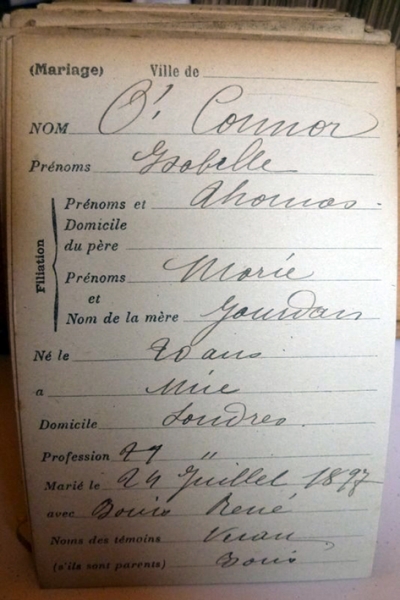 (Mariage) Ville de
NOM O' Connor
Prénoms Isabelle
Filiation
Prénoms et Thomas
Domicile
du père
Prénoms Marie
et
Nom de la mère Jourdan
Né le 20 ans
a
Domicile Londres
Profession "
Marié le 24 Juillet 1897
avec René
Noms des témoins
(s'ils sont parents)